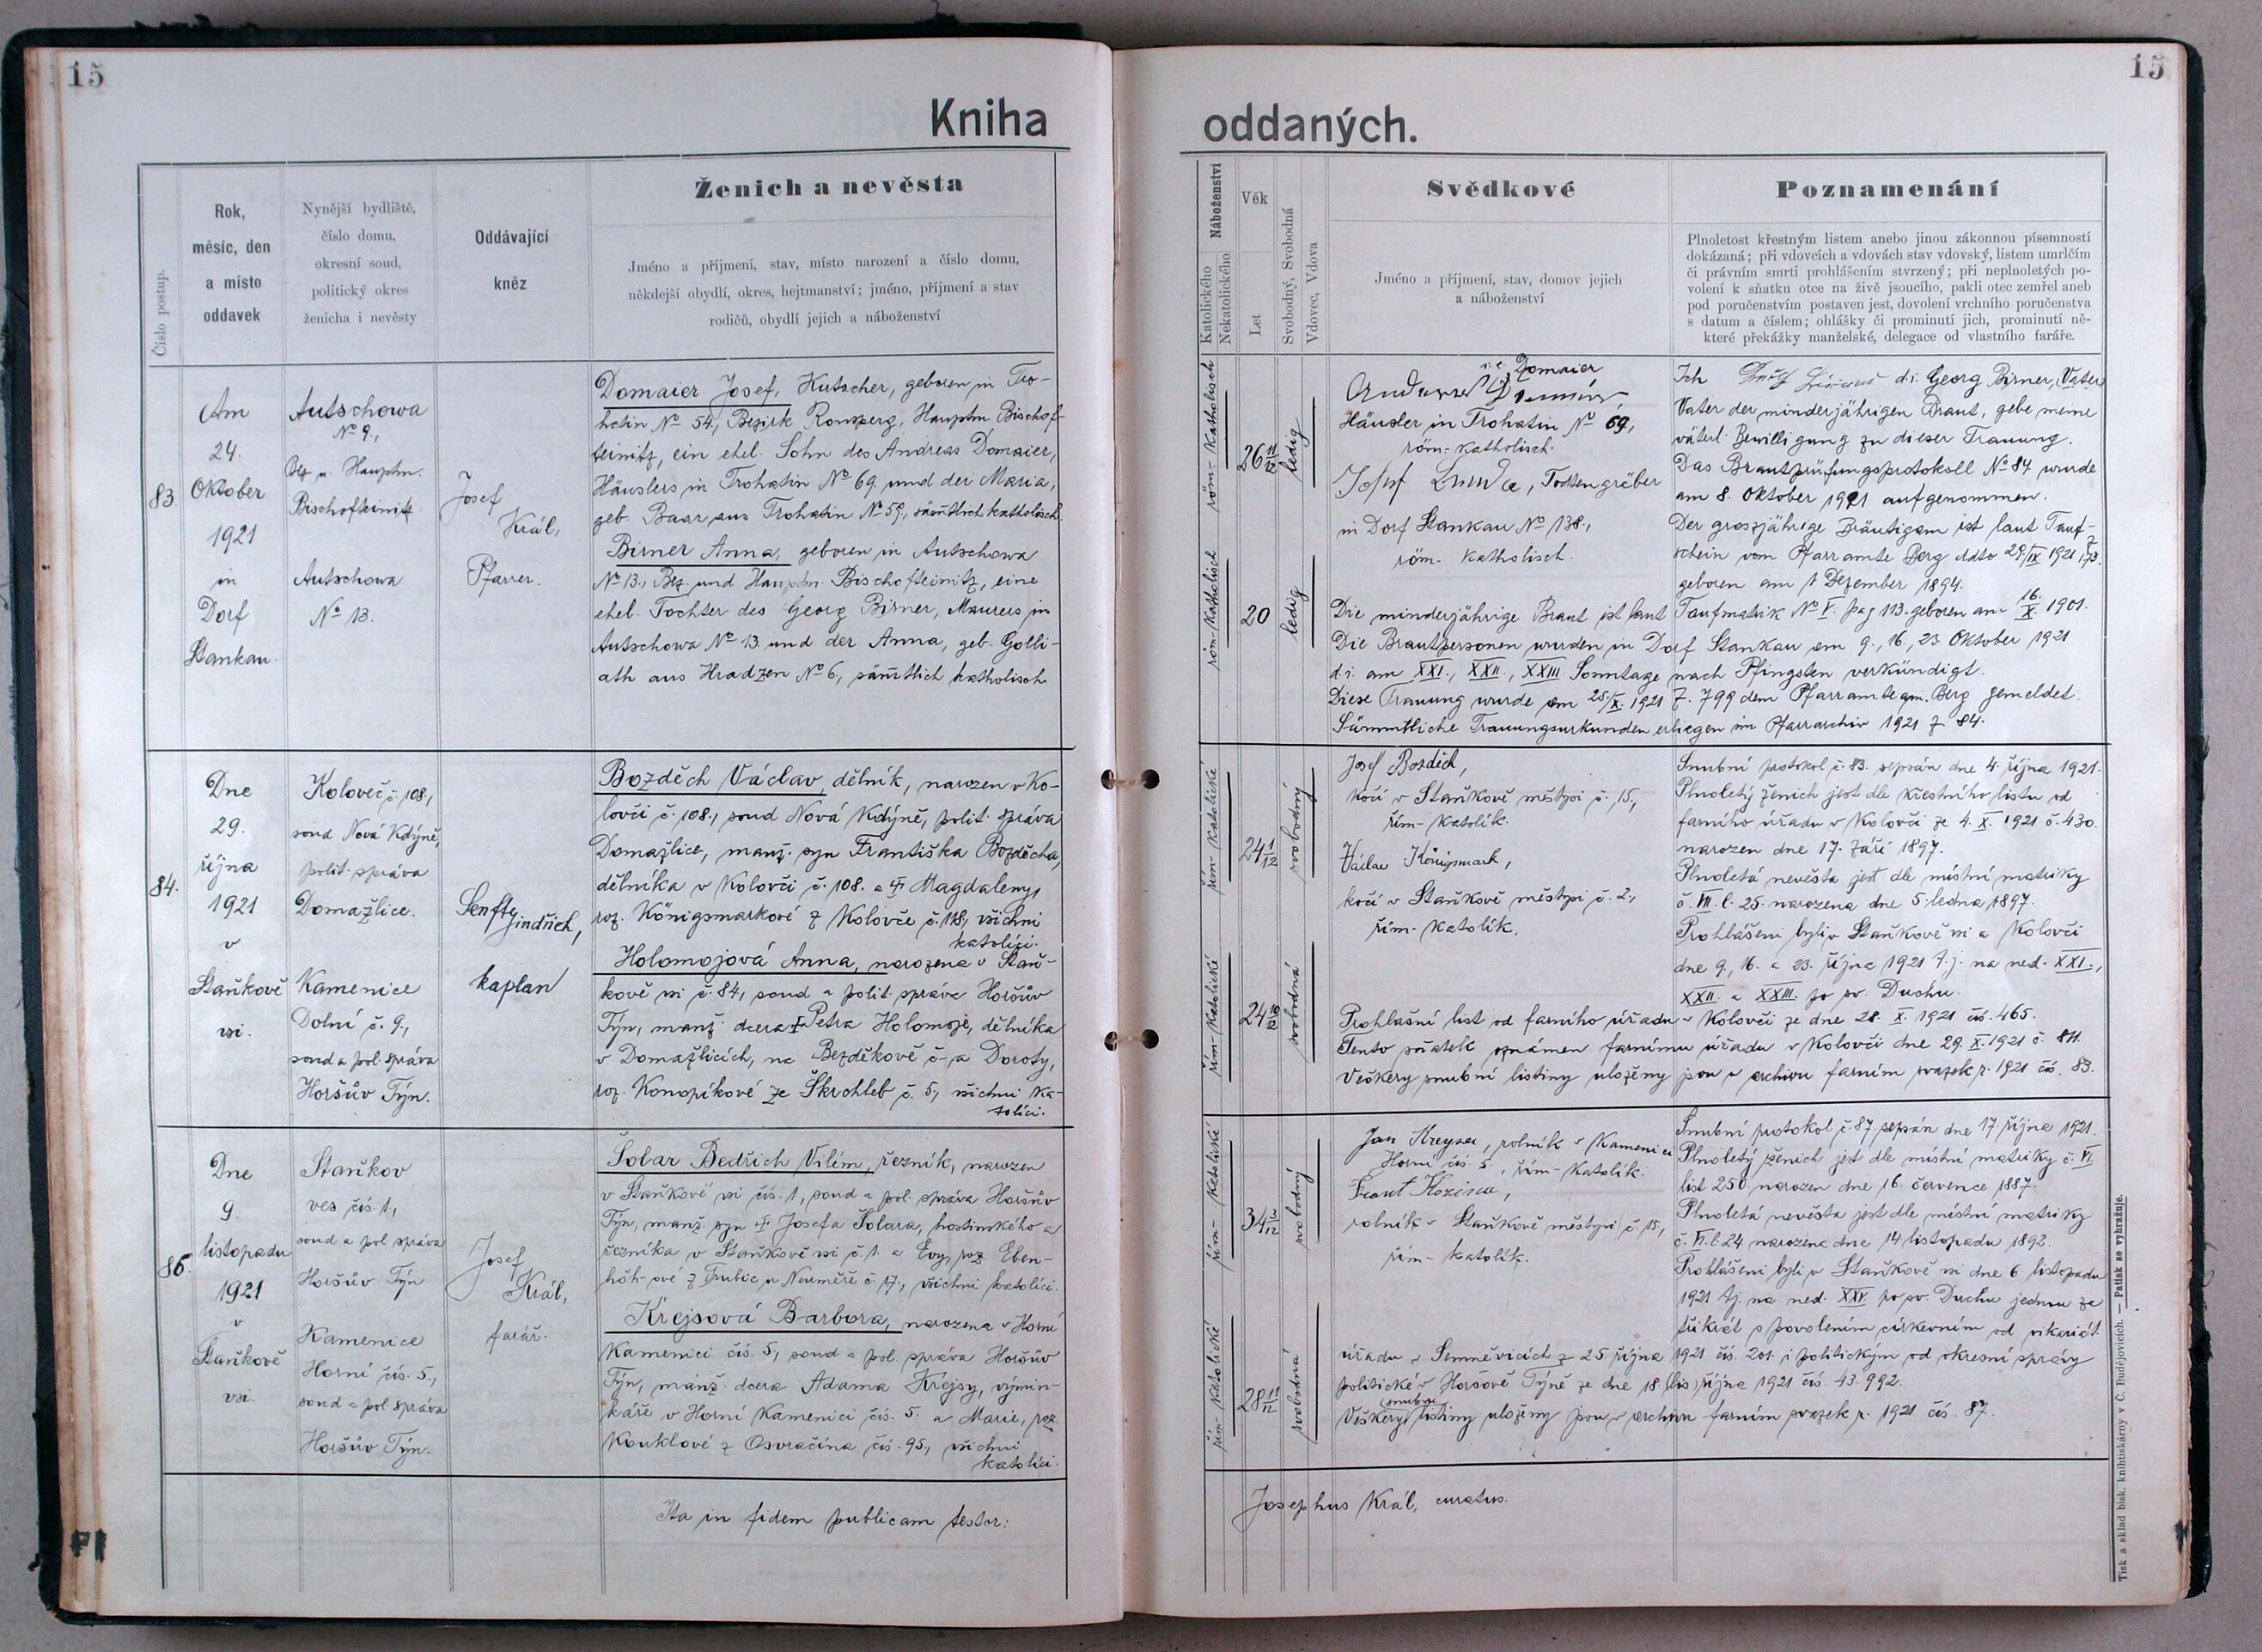 15
15
Kniha
oddaných.
Číslo postup.
Rok,
měsíc, den
a místo
oddavek
Nynější bydliště,
číslo domu,
okresní soud,
politický okres
ženicha i nevěsty
Oddávající
kněz
Ženich a nevěsta
Jméno a příjmení, stav, místo narození a číslo domu,
někdejší obydlí, okres, hejtmanství; jméno, příjmení a stav
rodičů, obydlí jejich a náboženství
Náboženství
Katolického
Nekatolického
Věk
Let
Svobodný, Svobodná
Vdovec, Vdova
Svědkové
Jméno a příjmení, stav, domov jejich
a náboženství
Poznamenání
Plnoletost křestným listem anebo jinou zákonnou písemností
dokázaná; při vdovcích a vdovách stav vdovský, listem umrlčím
či právním smrti prohlášením stvrzený; při neplnoletých po-
volení k sňatku otce na živě jsoucího, pakli otec zemřel aneb
pod poručenstvím postaven jest, dovolení vrchního poručenstva
s datum a číslem; ohlášky či prominutí jich, prominutí ně-
které překážky manželské, delegace od vlastního faráře.
83.
Am
24.
Oktober
1921
in
Dorf
Stankau.
Autschowa
No 9.,
Bez u. Hauptm.
Bischofteinitz
Autschowa
No 13.
Josef
Král,
Pfarrer.
Domaier Josef, Kutscher, geboren in Tro-
hatin No 54., Bezirk Ronsperg, Hauptm Bischof-
teinitz, ein ehel. Sohn des Andreas Domaier,
Häuslers in Trohatin No 69. und der Maria,
geb. Baar aus Trohatin No 59., säm̅tlich katholisch.
Birner Anna, geboren in Autschowa
No 13., Bez. und Hauptm. Bischofteinitz, eine
ehel. Tochter des Georg Birner, Maurers in
Autschowa No 13 und der Anna, geb. Golli-
ath aus Hradzen No 6., säm̅tlich katholisch
röm-katholisch
26 11/12
ledig
röm-katholisch
20
ledig
d. i. Domaier
Häusler in Trohatin No 69,
röm-katholisch.
Josef, Todtengräber
in Dorf Stankau No 138.,
röm. katholisch.
Ich d. i. Georg Birner, Vater
Vater der minderjährigen Braut, gebe meine
väterl. Bewilligung zu dieser Trauung.
Das Brautprüfungsprotokoll No 84 wurde
am 8. Oktober 1921 aufgenommen.
Der groszjährige Bräutigam ist laut Tauf-
schein vom Pfarramte Berg ddto 29/IX 1921, Z 73.
geboren am 1 Dezember 1894.
Die minderjährige Braut ist laut Taufmatrik No V. pag 113. geboren am 16./X. 1901.
Die Brautpersonen wurden in Dorf Stankau am 9., 16., 23. Oktober 1921
d. i. am XXI., XXII., XXIII Sonntage nach Pfingsten verkündigt.
Diese Trauung wurde am 25./X. 1921 Z. 799 dem Pfarramte am. Berg gemeldet.
Sämmtliche Trauungsurkunden erliegen im Pfarrarchiv 1921 Z 84.
84.
Dne
29.
října
1921
v
Staňkově
vsi.
Koloveč č. 108.,
soud Nová Kdýně,
polit. správa
Domažlice.
Kamenice
Dolní č. 9.,
soud a pol. správa
Horšův Týn.
Senft
Jindřich,
kaplan
Bozděch Václav, dělník, narozen v Ko-
lovči č. 108., soud Nová Kdýně, polit. správa
Domažlice, manž. syn Františka Bozděcha,
dělníka v Kolovči č. 108. a † Magdaleny,
roz. Königsmarkové z Kolovče č. 118., všichni
katolíci.
Holomojová Anna, narozena v Staň-
kově vsi č. 84, soud a polit. správa Horšův
Týn, manž. dcera † Petra Holomoje, dělníka
v Domažlicích, na Bezděkově č - a Doroty,
roz. Konopíkové ze Škrchleb č. 5., všichni ka-
tolíci.
řím-katolické
24 1/12
svobodný
řím-katolické
24 10/12
svobodná
Josef Bozděch,
kočí v Staňkově městysi č. 15,
řím-katolík.
Václav Königsmark,
kočí v Staňkově městysi č. 2.,
řím-katolík.
Snubní protokol č. 83. sepsán dne 4. října 1921.
Plnoletý ženich jest dle křestního listu od
farního úřadu v Kolovči ze 4. X. 1921 č. 430.
narozen dne 17. září 1897.
Plnoletá nevěsta jest dle místní matriky
č. VII. l. 25. narozena dne 5. ledna, 1897.
Prohlášeni byli v Staňkově vsi a Kolovči
dne 9., 16. a 23. října 1921 t. j. na ned. XXI.,
XXII. a XXIII. po sv. Duchu.
Prohlašní list od farního úřadu v Kolovči ze dne 28. X. 1921 čís. 465.
Tento sňatek oznámen farnímu úřadu v Kolovči dne 29. X. 1921 č. 811.
Veškery snubní listiny uloženy jsou v archivu farním svazek r. 1921 čís. 83.
86.
Dne
9.
listopadu
1921
v
Staňkově
vsi.
Staňkov
ves čís. 1.,
soud a pol. správa
Horšův Týn
Kamenice
Horní čís. 5.,
soud a pol. správa
Horšův Týn.
Josef
Král,
farář.
Šolar Bedřich Vilém, řezník, narozen
v Staňkově vsi čís. 1, soud a pol. správa Horšův
Týn, manž. syn † Josefa Šolara, hostinského a
řezníka v Staňkově vsi č. 1. a Evy, roz Eben-
höh-ové z Trubic u Neuměře č. 17., všichni katolíci.
Krejsová Barbora, narozena v Horní
Kamenici čís. 5., soud a pol. správa Horšův
Týn, manž. dcera Adama Krejsy, výmin-
káře v Horní Kamenici čís. 5. a Marie, roz.
Kouklové z Osvračína čís. 95., všichni
katolíci.
řím-katolické
34 3/12
svobodný
řím-katolické
28 11/12
svobodná
Jan Kreysa, rolník v Kamenici
Horní čís 5., řím-katolík.
Frant Kozina,
rolník v Staňkově městysi č. 15,
řím-katolík.
Snubní protokol č. 87 sepsán dne 17. října 1921.
Plnoletý ženich jest dle místní matriky č. VI.
list 250 narozen dne 16. července 1887.
Plnoletá nevěsta jest dle místní matriky
č. VI. l. 24 narozena dne 14 listopadu 1892.
Prohlášeni byli v Staňkově vsi dne 6. listopadu
1921 tj. na ned. XXV. po sv. Duchu jednou ze
třikrát s povolením církevním od vikariát.
úřadu v Semněvicích z 25 října 1921 čís. 201. i politickým od okresní správy
politické v Horšově Týně ze dne 18. (lis) října 1921 čís. 43.992.
snubní
Veškery listiny uloženy jsou v archivu farním svazek r. 1921 čís. 87
Ita in fidem publicam testor:
Josephus Král, curatus.
Tisk a sklad bisk. knihtiskárny v Č. Budějovicích. — Patisk se vyhražuje.